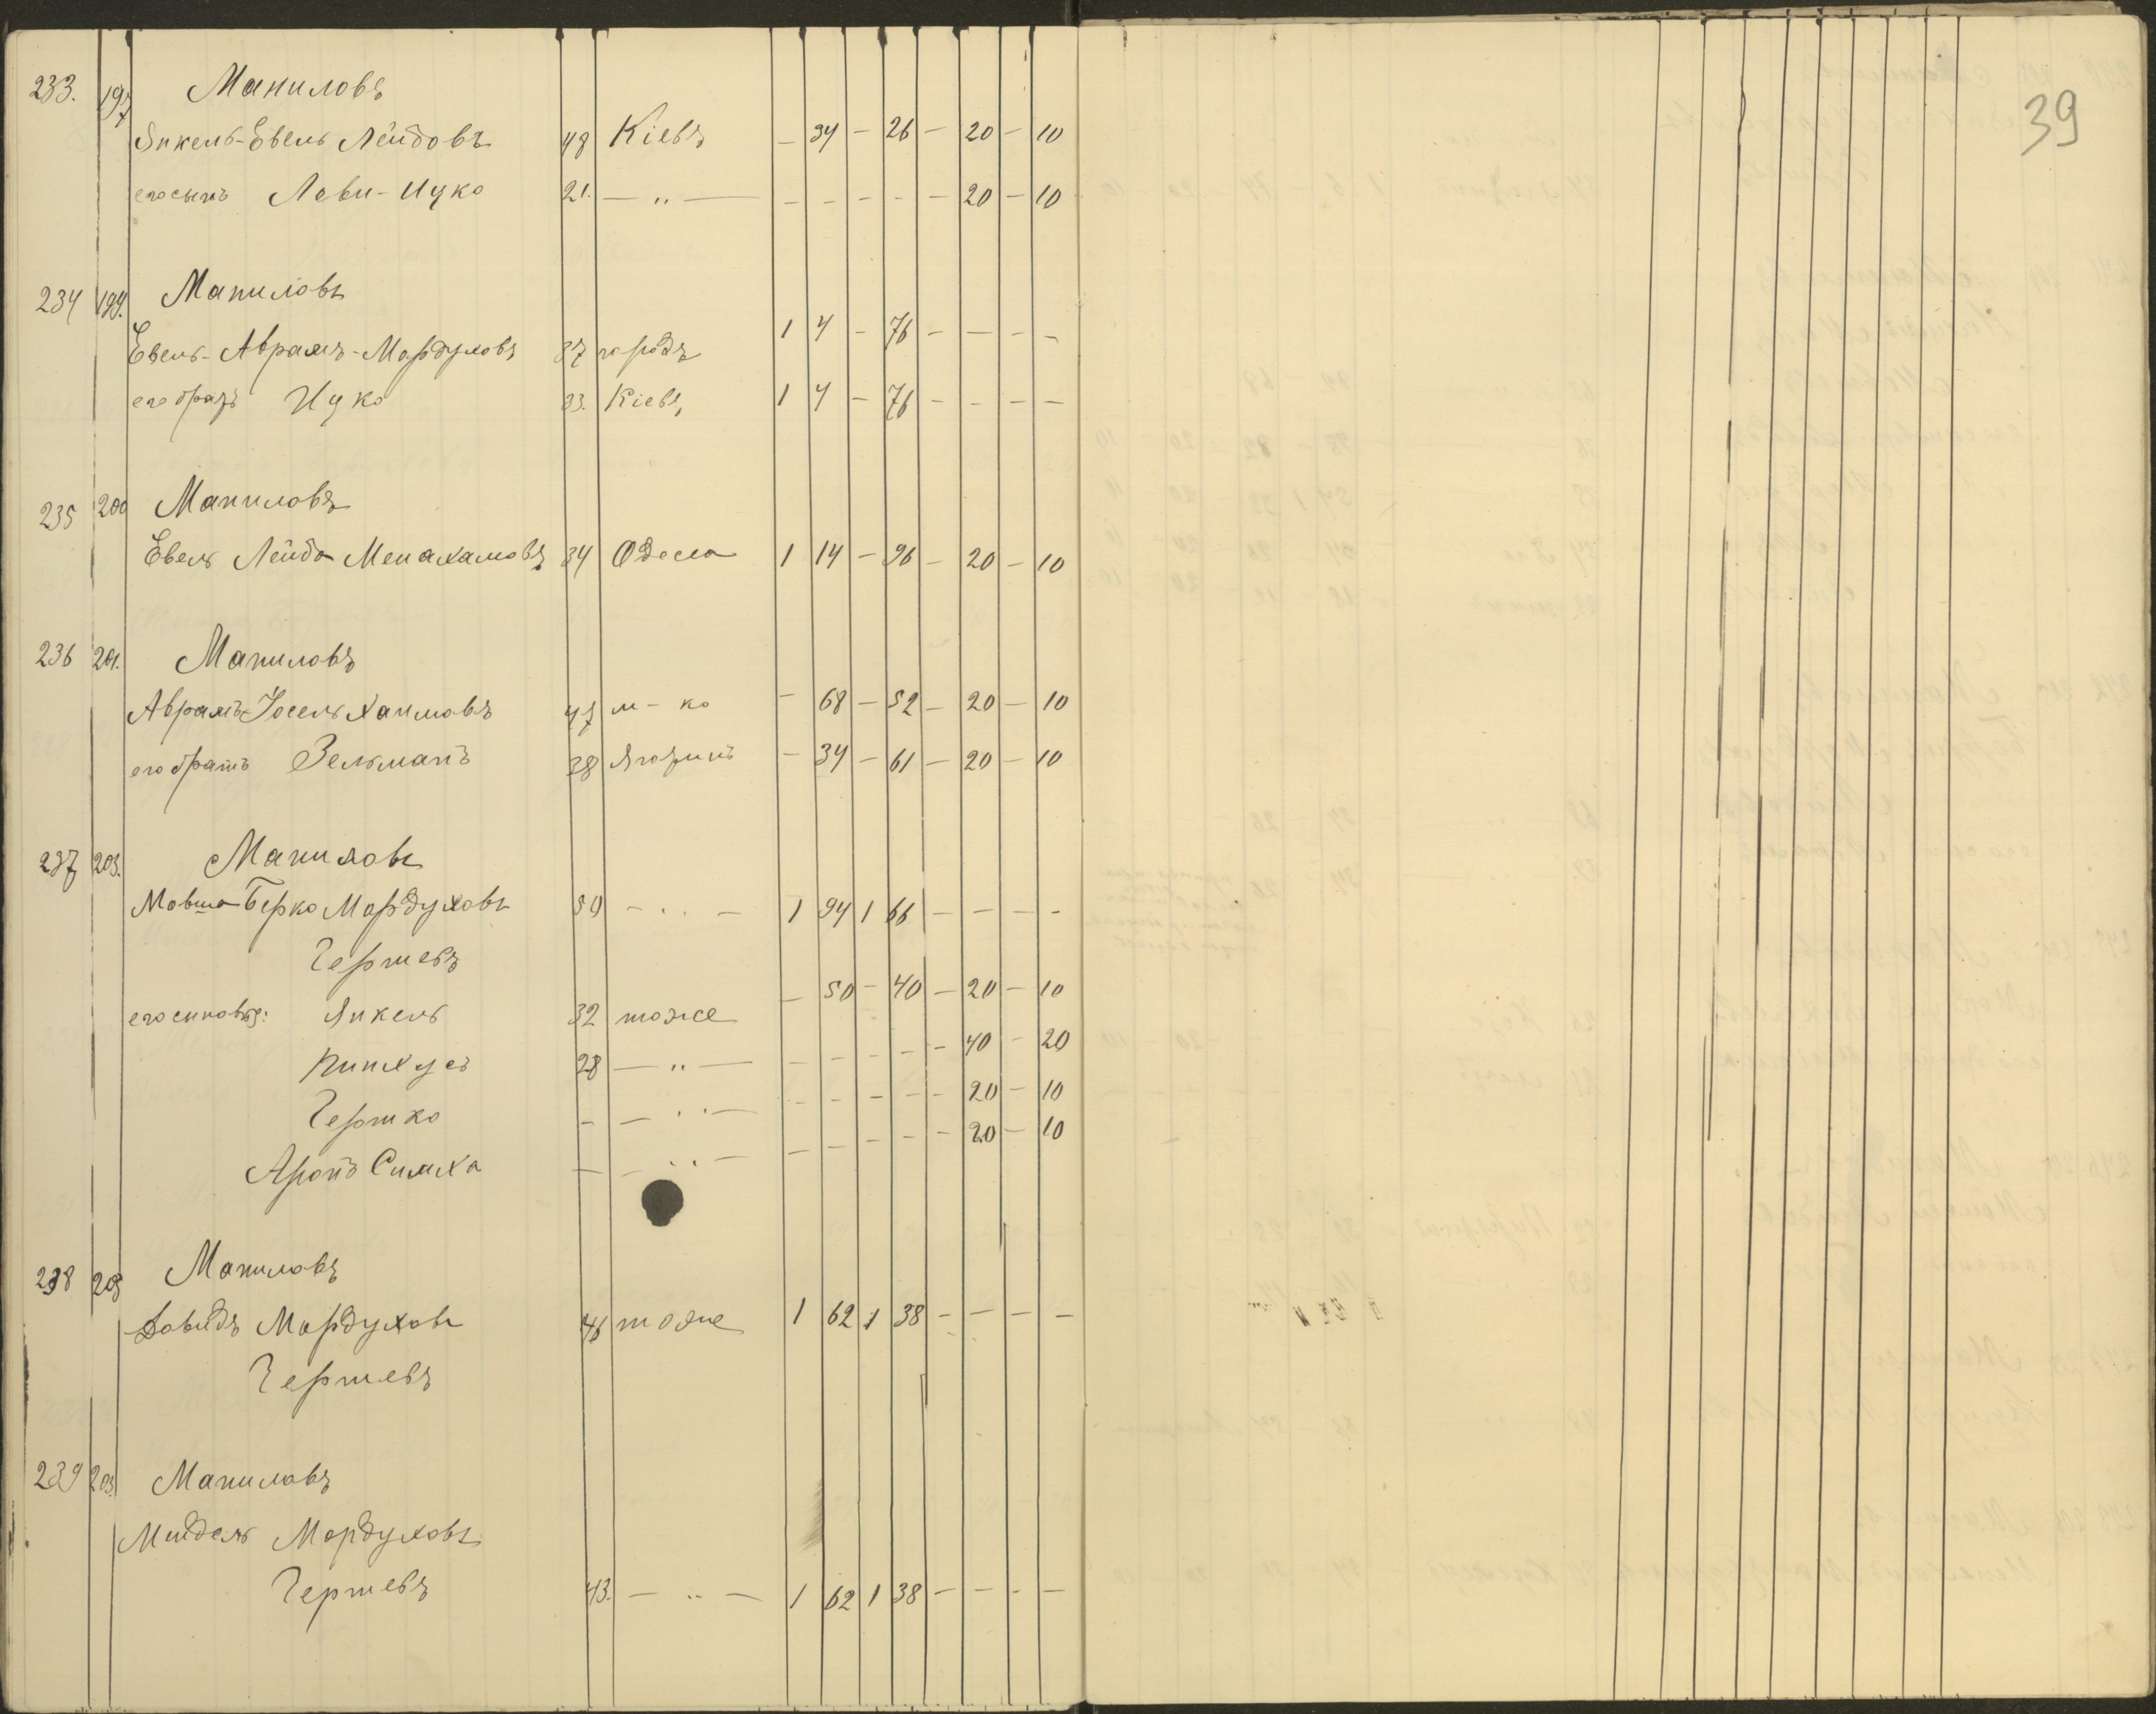 233. 197 Маниловъ
Янкель-Евель Лейбовъ 48 Кіевъ — 34 — 26 — 20 — 10
его сынъ Леви-Ицко 21. — " — — — — — — 20 — 10
234 199. Маниловъ
Евель-Аврамъ-Мордуховъ 37 городъ 1 4 — 76 — — — —
его братъ Ицко 33. Кіевъ, 1 4 — 76 — — — —
235 200 Маниловъ
Евель Лейба Менахамовъ 34 Одесса 1 14 — 96 — 20 — 10
236 201. Маниловъ
Аврамъ-Іосель Хаимовъ 47 м-ко — 68 — 52 — 20 — 10
его братъ Зельманъ 38 Ягоринъ — 34 — 61 — 20 — 10
237 203. Маниловъ
Мовша Берко Мордуховъ 59 — " — 1 94 1 66 — — — —
Гершевъ
его сыновья: Янкель 32 тоже — 50 — 40 — 20 — 10
Пинхусъ 28 — " — — — — — — 40 — 20
Гершко — — " — — — — — — 20 — 10
Аронъ Симха — — " — — — — — — 20 — 10
238 203 Маниловъ
Давидъ Мордуховъ 46 тоже 1 62 1 38 — — — —
Гершевъ
239 203. Маниловъ
Миндель Мордуховъ
Гершевъ 43. — " — 1 62 1 38 — — — —
39